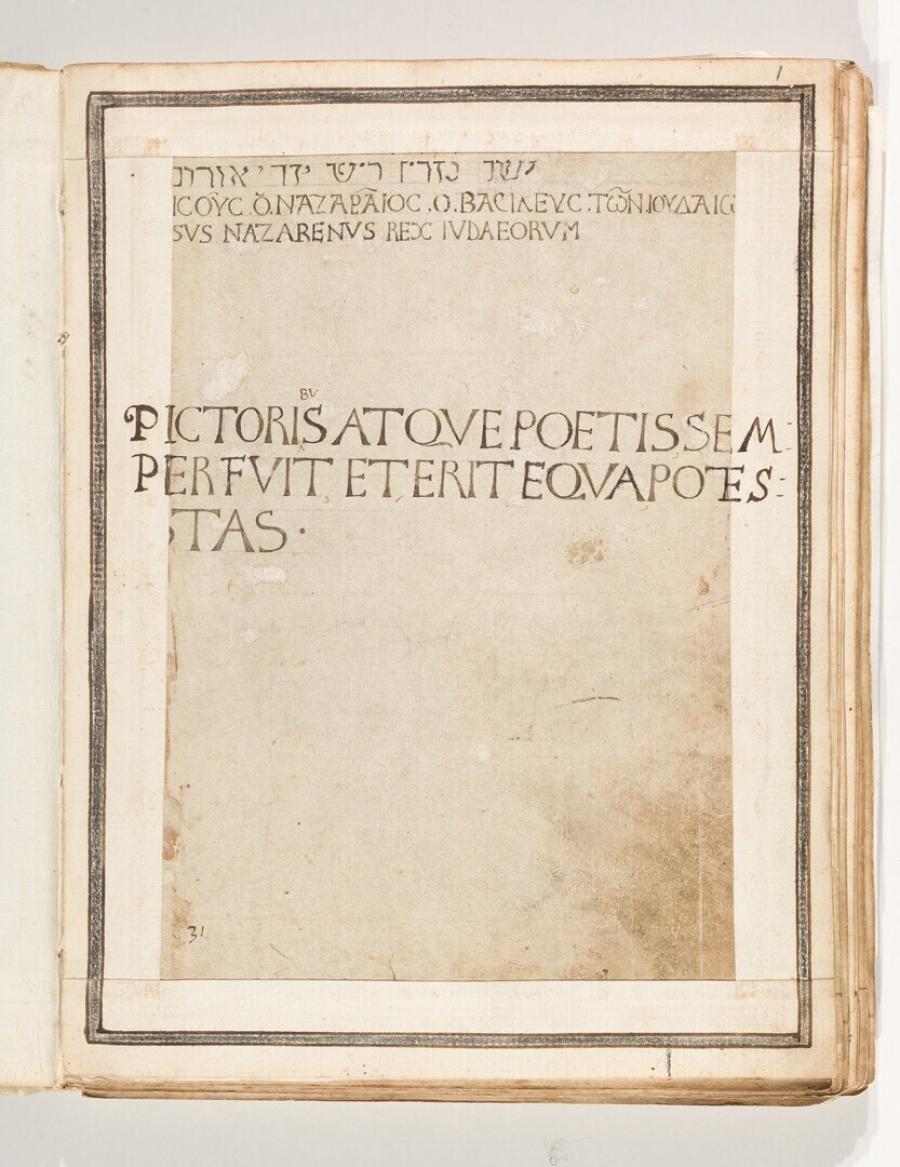 1
ΙCΟΥC .Ο. ΝΑΖΑΡΑΙΟC .Ο. ΒΑCΙΛΕΥC .ΤΩΝ ΙΟΥΔΑΙΩ
SVS NAZARENVS REX IVDAEORVM
BV
PICTORIS ATQVE POETIS SEM:
PER FVIT, ET, ERIT EQVA POTES:
STAS ·
31